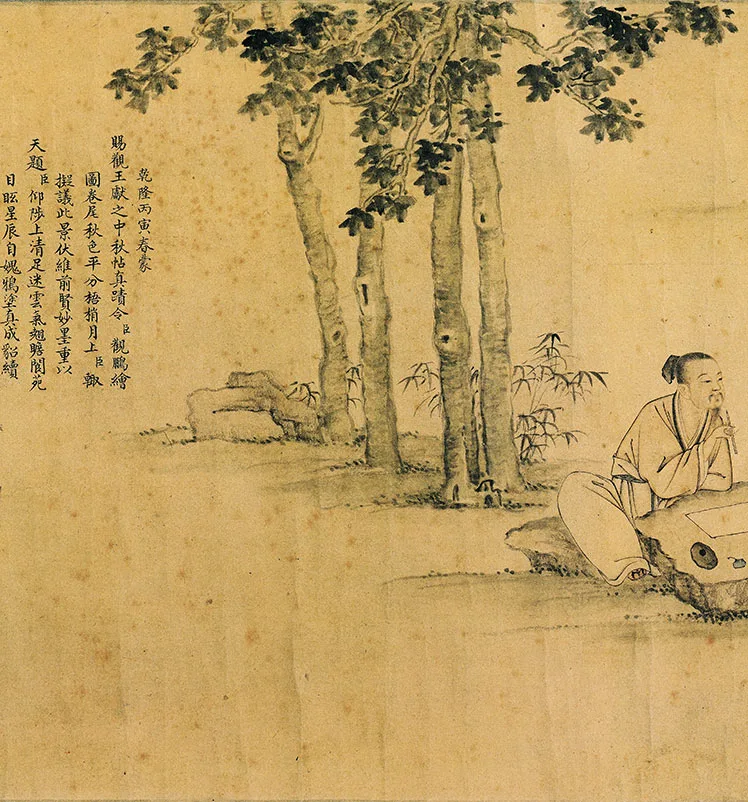 乾隆丙寅春蒙
賜觀王獻之中秋帖真蹟令臣觀鵬繪
圖卷尾秋色平分梧梢月上臣輙
擬議此景伏維前賢妙墨重以
天題臣仰陟上清足迷雲氣翹瞻閬苑
目眩星辰自媿鴉塗真成貂續